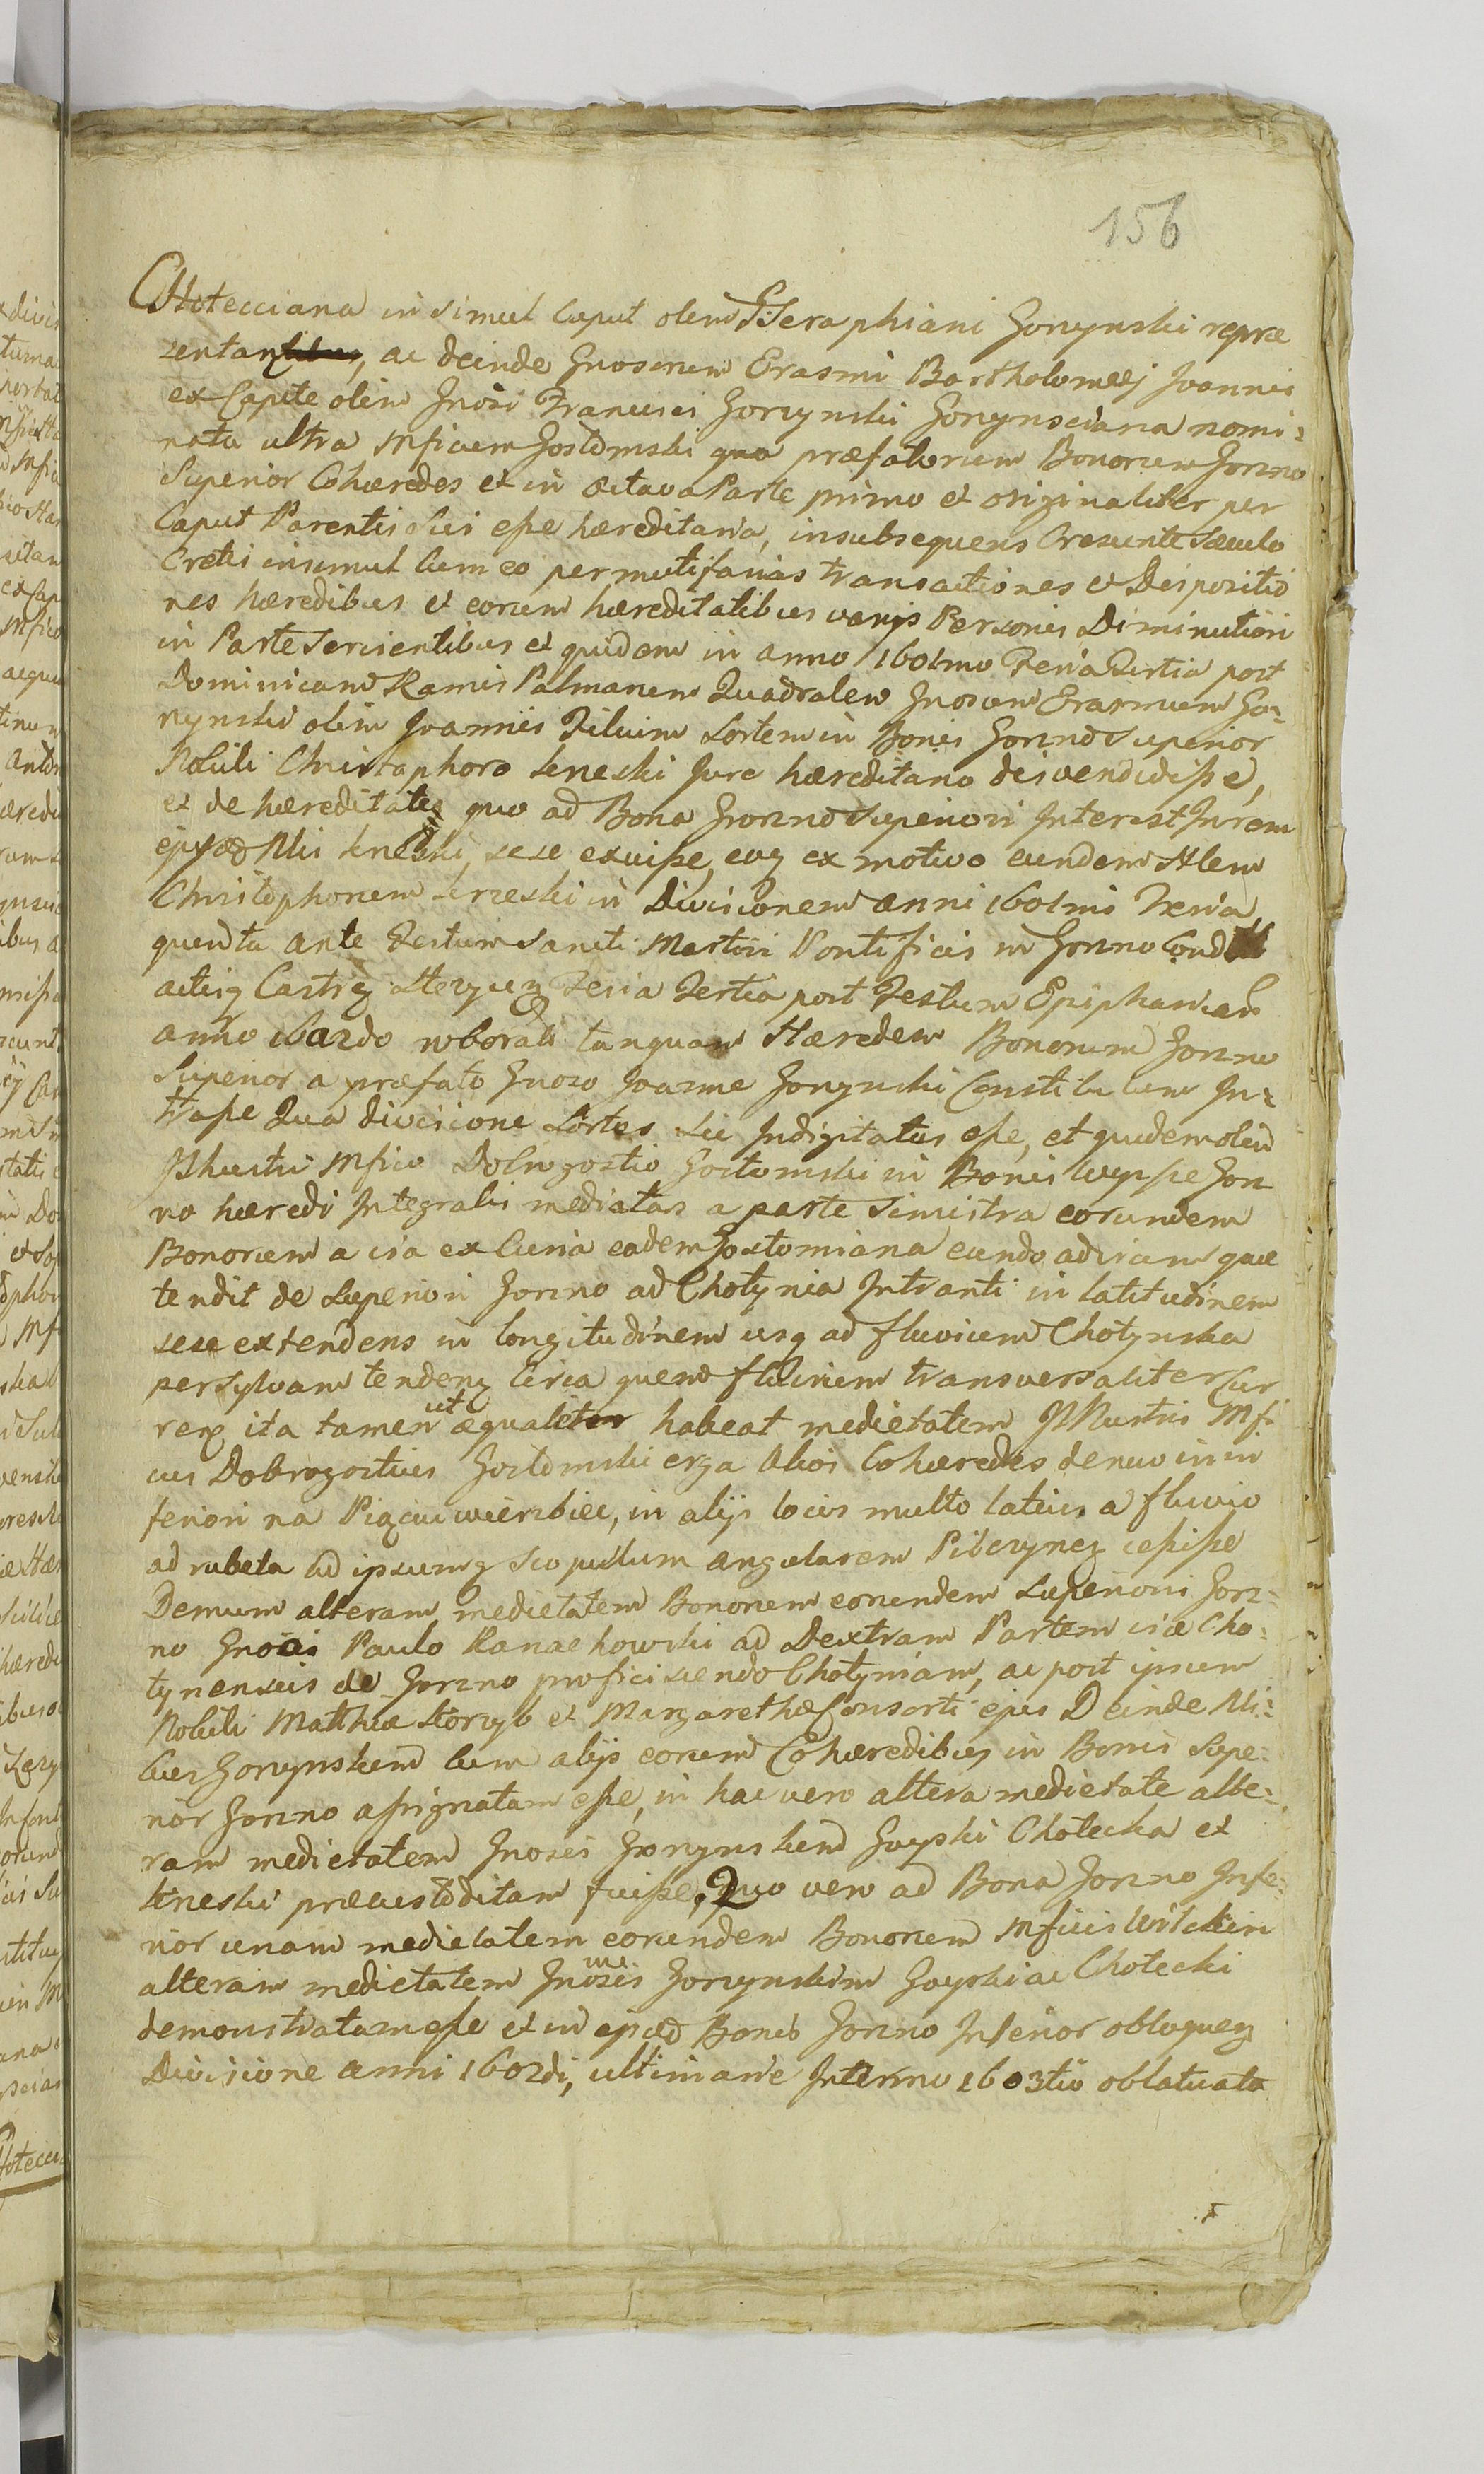 156
CHotecciana in simul Caput olim G. Seraphiani Gorzynski repræ
zentan, ac deinde Gnosorum Erasmi Bartholomæj Joannis
ex Capite olim Gnosi Francisci Gorzynski Gorzynsciana nomi:
nata ultra Mficum Gostomski qua præfatorum Bonorum Gorzno
Superior Cohæredes et in octava Parte primo et originaliter per
Caput Parentis Sui eße hæreditaria, insubsequens Crescente Sæculo
Cretis insimul Cum eo per multifarias transactiones et Dispozitio
nes hæredibus et eorum hæreditatibus varijs Personis Diminutiori
in Parte Servientibus et quidem in anno 1601mo Feria Tertia post
Dominicam Ramis Palmarum Quadralem Gnosum Erasmum Go:
rzynski olim Joannis Filium Sortem in Bonis Gorzno Superior
Nobili Christophoro Kneski Jure hæreditario disvendidiße,
et de hæreditate quo ad Bona Gorzno Superiori Interest Jurem
ejusd Nli Kneski, sese exuiße, eoq ex motivo eundem Nlem
Christophorum Krzeski in Divisionem anni 1601mi Feria
quinta ante Festum Sancti Martini Pontificis in Gorzno Cond
actisq Castrq Stezycq Feria Tertia post Festum Epiphaniar
anno 1602do roborati tanquam Hæredem Bonorum Gorzno
Superior a præfato Gnoso Joanne Gorzynski Constitutum In:
traße Qua divisione Sortes sic Indigitatas eße, et quidem olim
Jllustri Mfico Dobrogostio Gostomski in Bonis Wyższe Gorz
no hæredi Integralis medietas a parte Sinistra eorundem
Bonorum a via ex Curia eadem Gostomiana eundo ad viam quæ
tendit de Superiori Gorzno ad Chotynia Intranti in latitudinem
sese extendens in longitudinem usq ad fluvium Chotynska
per sylvam tendenq Circa quend fluvium transversaliter Cur
renq ita tamen ut æqualiter habeat medietatem Jllustris Mfi
cus Dobrogostius Gostomski erga Alios Cohæredes denuo in in
feriori na Piąciu wierzbiec, in alijs locis multo latius a fluvio
ad rubeta ad ipsumq Scopulum angularem Pilczyneq cepiße
Demum alteram medietatem Bonorum eorundem Superiori Gorz:
no Gnosi Paulo Kanaehowski ad Dextram Partem viæ Cho:
tynensis de Gorzno proficiscendo Chotyniam, ac post ipsum
Nobili Matthiæ Storzyb et Margarethæ Consorti ejus Deinde Nli:
bus Gorzynskim Cum alijs eorum Cohæredibus, in Bonis Supe:
rior Gorzno aßignatam eße, in hac vero altera medietate alte:
ram medietatem Gnosis Gorzynskim Goyski Chotecka et
Kneski præcustoditam fuiße, Quo vero ad Bona Gorzno Infe:
rior unam medietatem eorundem Bonorum Mficis Wilckim
alteram medietatem Gnosis Gorzynskim Goyski ac Chotecki
demonstratam eße et in ejusd Bonis Gorzno Inferior obloquenq
Divisione anni 1602di, ultimarie Interimo 1603tio oblatuata